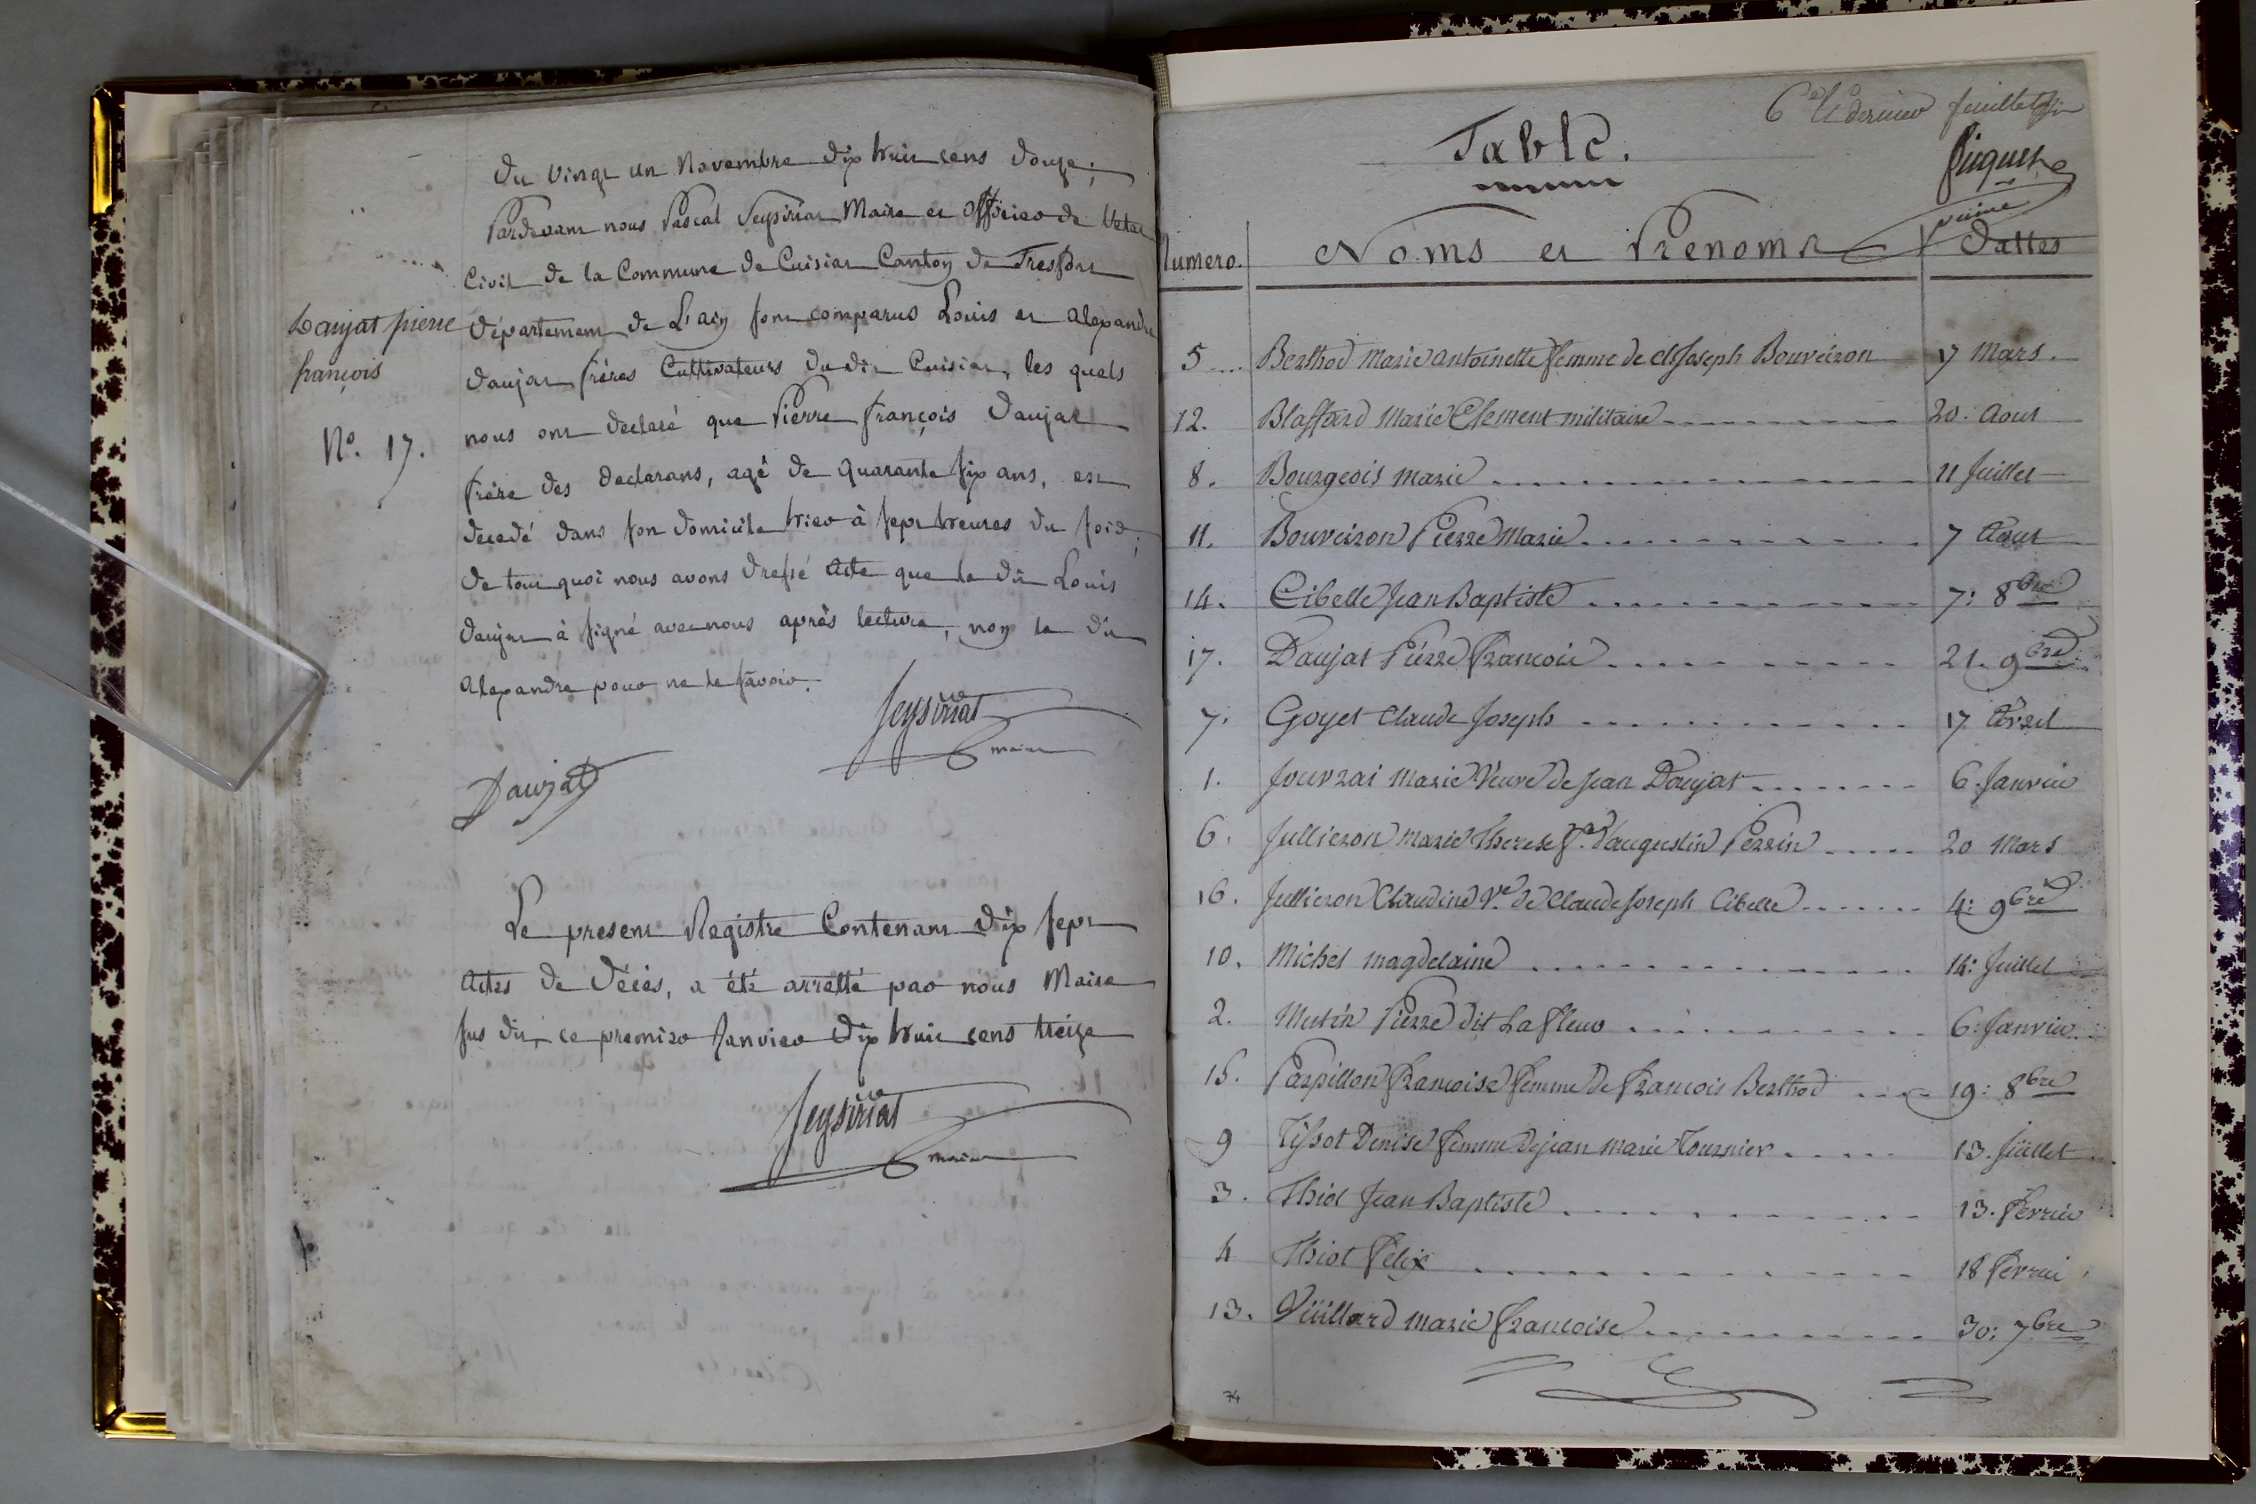 Du vingt un Novembre dix huit cens douze;
Pardevant nous Pascal Seyssiriat Maire et officier de l'etat
Civil de la Commune de Cuisiat Canton de Treffort
Département de L'ain sont comparus Louis et alexandre
daujat frères Cultivateurs du dit Cuisiat, les quels
nous ont declaré que Pierre françois Daujat
frère des declarans, agé de quarante six ans, est
decedé dans son domicile hier à sept heures du soir;
de tout quoi nous avons dressé acte que le dit Louis
daujat à signé avec nous après lecture, non le dit
alexandre pour ne le savoir.
Daujat pierre
françois
No. 17.
Seysiriat
maire
Daujat
Le present Registre Contenant dix sept
actes de Décès, a été arretté par nous Maire
sus dit, ce premier Janvier dix huit cens treize
Seysiriat
maire
6e et dernier feuillet
Table.
Numero. Noms et Prenoms dattes
5 Berthod Marie antoinette femme de Cl Joseph Bouveiron 17 Mars.
12. Blaffard Marie Clement militaire 20. Aout
8. Bourgeois Marie 11 Juillet
11. Bouveiron Pierre Marie 7 Aout
14. Cibelle Jean Baptiste 7: 8bre
17. Daujat Pierre Francois 21. 9bre
7. Goyet Claude Joseph 17 Avril
1. Jouvrai Marie Veuve de Jean Daujat 6. Janvier
6. Jullieron Marie Therese fe d'augustin Perrin 20 Mars
16. Jullieron Claudine Ve de Claude Joseph Cibelle 4: 9bre
10. Michel magdelaine 14: Juillet
2. Mutin Pierre dit La fleur 6: Janvier
15. Parpillon Francoise femme de Francois Berthod 19: 8bre
9 Tissot Denise femme de jean marie Tournier 13. Juillet
3. Thiot Jean Baptiste 13. Fevrier
4 Thiot Felix 18 Fevrier
13. Vüillard marie francoise 30: 7bre
74